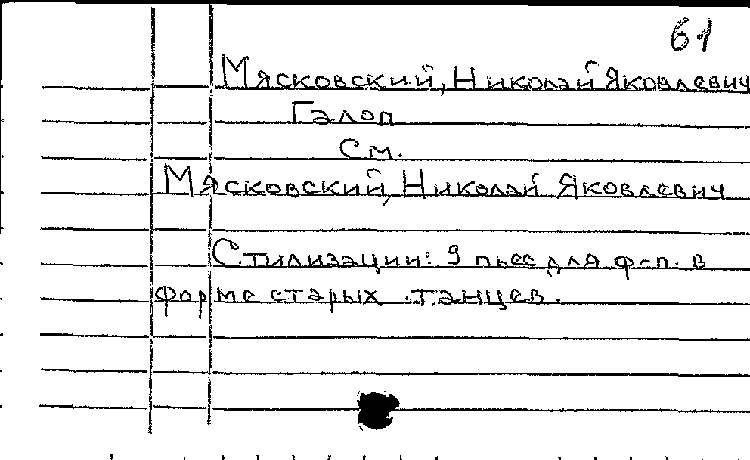 61
Мясковский, Николай Яковлевич
Галоп
См.
Мясковский, Николай Яковлевич
Стилизации: 9 пьес для ф-п. в
форме старых танцев.